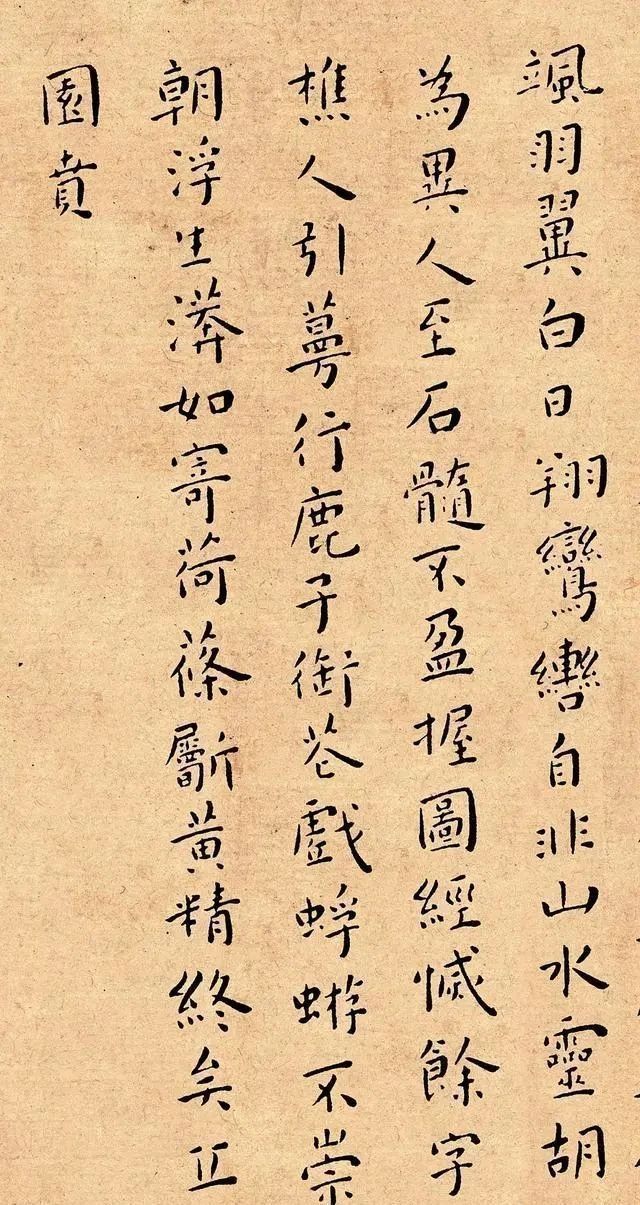 颯羽翼白日翔鸞轡自非山水靈胡
為異人至石髓不盈握圖經慽餘字
樵人引萼行鹿子銜花戲蜉蝣不崇
朝浮生漭如寄荷蓧斸黃精終矣丘
園賁